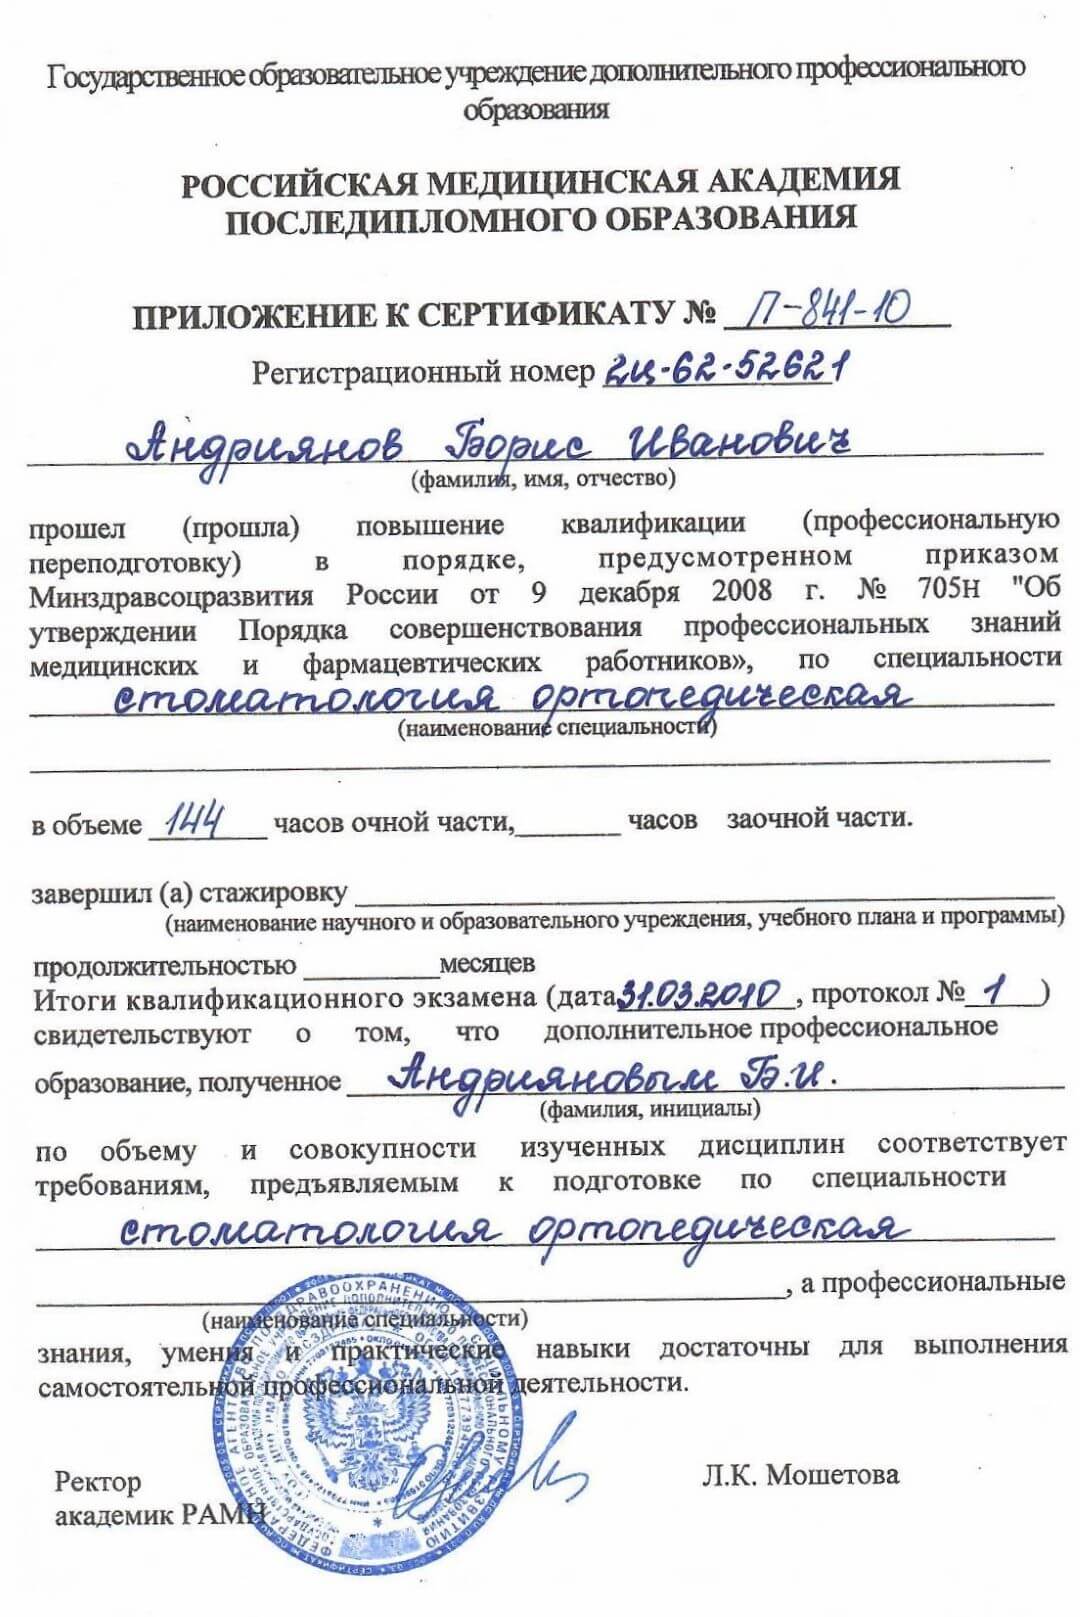 Государственное образовательное учреждение дополнительного профессионального
образования
РОССИЙСКАЯ МЕДИЦИНСКАЯ АКАДЕМИЯ
ПОСЛЕДИПЛОМНОГО ОБРАЗОВАНИЯ
ПРИЛОЖЕНИЕ К СЕРТИФИКАТУ № П-841-10
Регистрационный номер 2ц-62-52621
Андриянов Борис Иванович
(фамилия, имя, отчество)
прошел (прошла) повышение квалификации (профессиональную
переподготовку) в порядке, предусмотренном приказом
Минздравсоцразвития России от 9 декабря 2008 г. № 705н "Об
утверждении Порядка совершенствования профессиональных знаний
медицинских и фармацевтических работников», по специальности
стоматология ортопедическая
(наименование специальности)
в объеме 144 часов очной части, часов заочной части.
завершил (а) стажировку
(наименование научного и образовательного учреждения, учебного плана и программы)
продолжительностью месяцев
Итоги квалификационного экзамена (дата 31.03.2010, протокол № 1)
свидетельствуют о том, что дополнительное профессиональное
образование, полученное Андрияновым Б.И.
(фамилия, инициалы)
по объему и совокупности изученных дисциплин соответствует
требованиям, предъявляемым к подготовке по специальности
стоматология ортопедическая
, а профессиональные
(наименование специальности)
знания, умения и практические навыки достаточны для выполнения
самостоятельной профессиональной деятельности.
Ректор
академик РАМН
Л.К. Мошетова